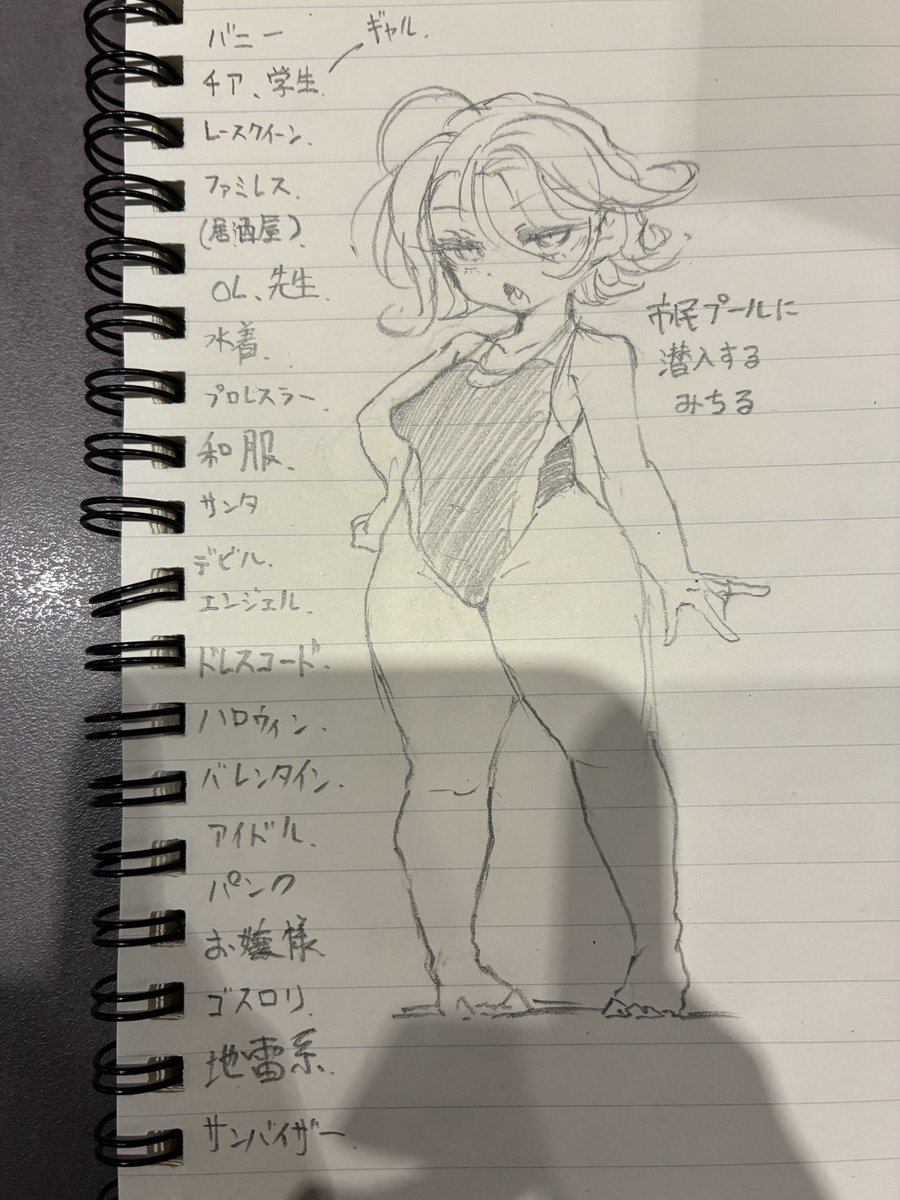 バニー
ギャル.
チア、学生.
レースクイーン.
ファミレス.
(居酒屋).
OL、先生.
水着.
プロレスラー.
和服.
サンタ
デビル.
エンジェル.
ドレスコード.
ハロウィン.
バレンタイン.
アイドル.
パンク
お嬢様.
ゴスロリ.
地雷系.
サンバイザー.
市民プールに
潜入する
みちる